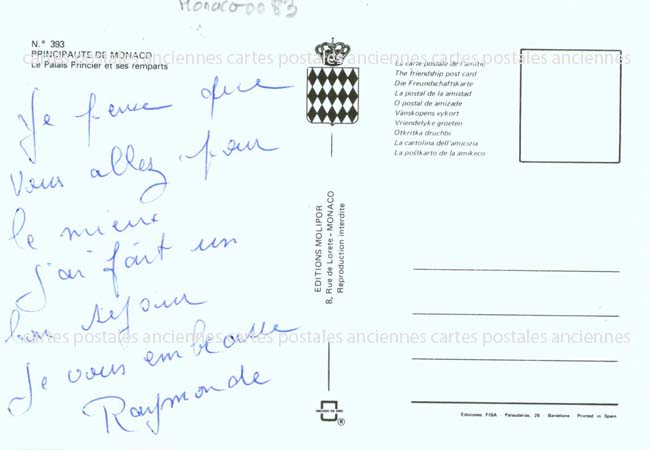 Monaco 00 83
N.° 393
PRINCIPAUTE DE MONACO
Le Palais Princier et ses remparts
cartes postales anciennes cartes postales anciennes cartes postales anciennes
Je pense que
vous allez pour
le mieux
j'ai fait un
bon sejour
Je vous embrasse
Raymonde
La carte postale de l'amitié
The friendship post card
Die Freundschaftskarte
La postal de la amistad
O postal de amizade
Vänskopens vykort
Vriendelyke groeten
Otkritka druchbi
La cartolina dell'amicizia
La poŝtkarto de la amikeco
EDITIONS MOLIPOR
8, Rue de Lorete - MONACO
Reproduction interdite
cartes postales anciennes cartes postales anciennes cartes postales anciennes
Ediciones FISA - Palaudarias, 26 - Barcelona - Printed in Spain